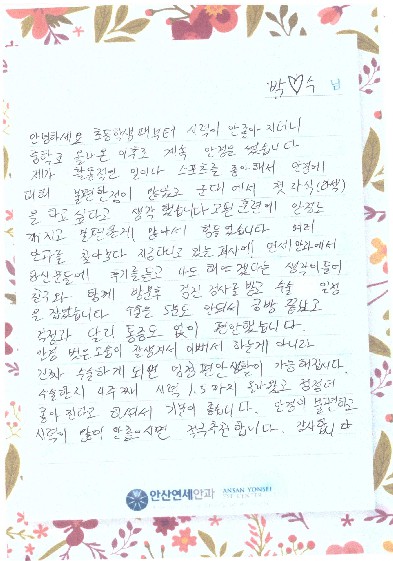 박♡수 님
안녕하세요 초등학생때부터 시력이 안좋아 지더니
중학교 올라온 이후로 계속 안경을 썼습니다
제가 활동적인 일이나 스포츠를 좋아해서 안경에
대해 불편한점이 많았고 군대에서 첫
을 하고싶다고 생각했습니다 고된 훈련에 안경도
깨지고 불편한게 많아서 힘들었습니다 여러
안과를 찾아보다 지금다니고 있는 회사에 연세안과에서
하신분들에 후기를듣고 나도 해야겠다는 생각이들어
친구와 함께 방문후 검진 검사를 받고 수술 일정
을 잡았습니다 수술은 5분도 안되서 금방 끝났고
걱정과 달리 통증도 없이 편안했습니다.
안경 벗은 모습이 잘생겨져서 이뻐서 하는게 아니라
진짜 수술하게 되면 엄청 편안 생활이 가능해집니다.
수술한지 4주째 시력 1.5까지 올라왔고 점점더
좋아진다고 하셔서 기분이 좋습니다. 안경이 불편하고
시력이 많이 안좋으시면 적극추천합니다. 감사합니다
안산연세안과 ANSAN YONSEI
EYE CENTER